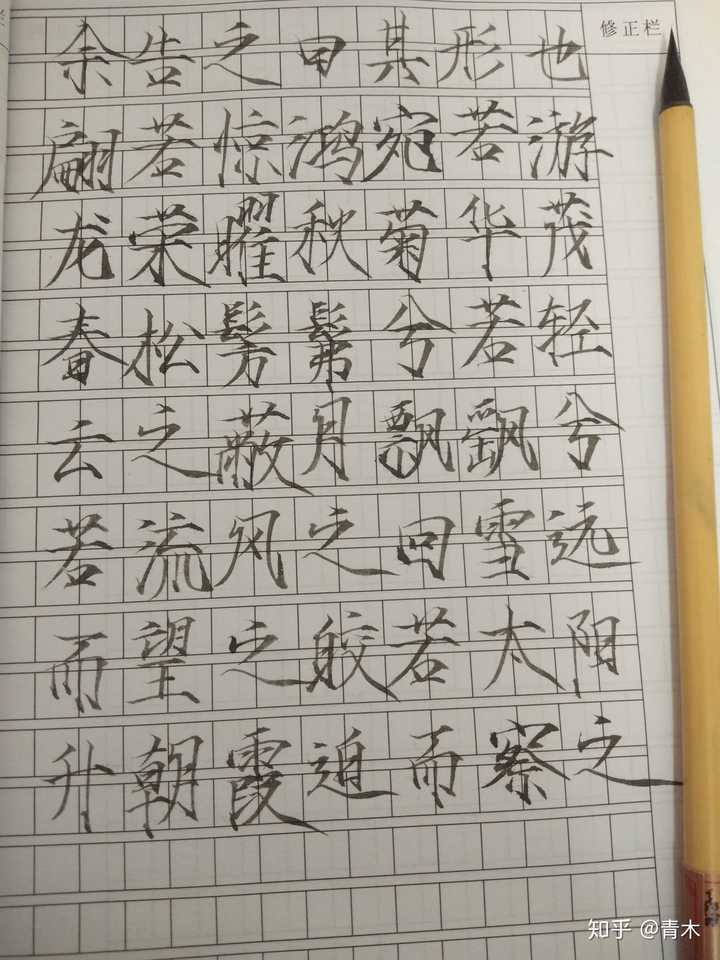 修正栏
余告之曰其形也
翩若惊鸿宛若游
龙荣曜秋菊华茂
春松髣髴兮若轻
云之蔽月飘飖兮
若流风之回雪远
而望之皎若太阳
升朝霞迫而察之
知乎 @青木